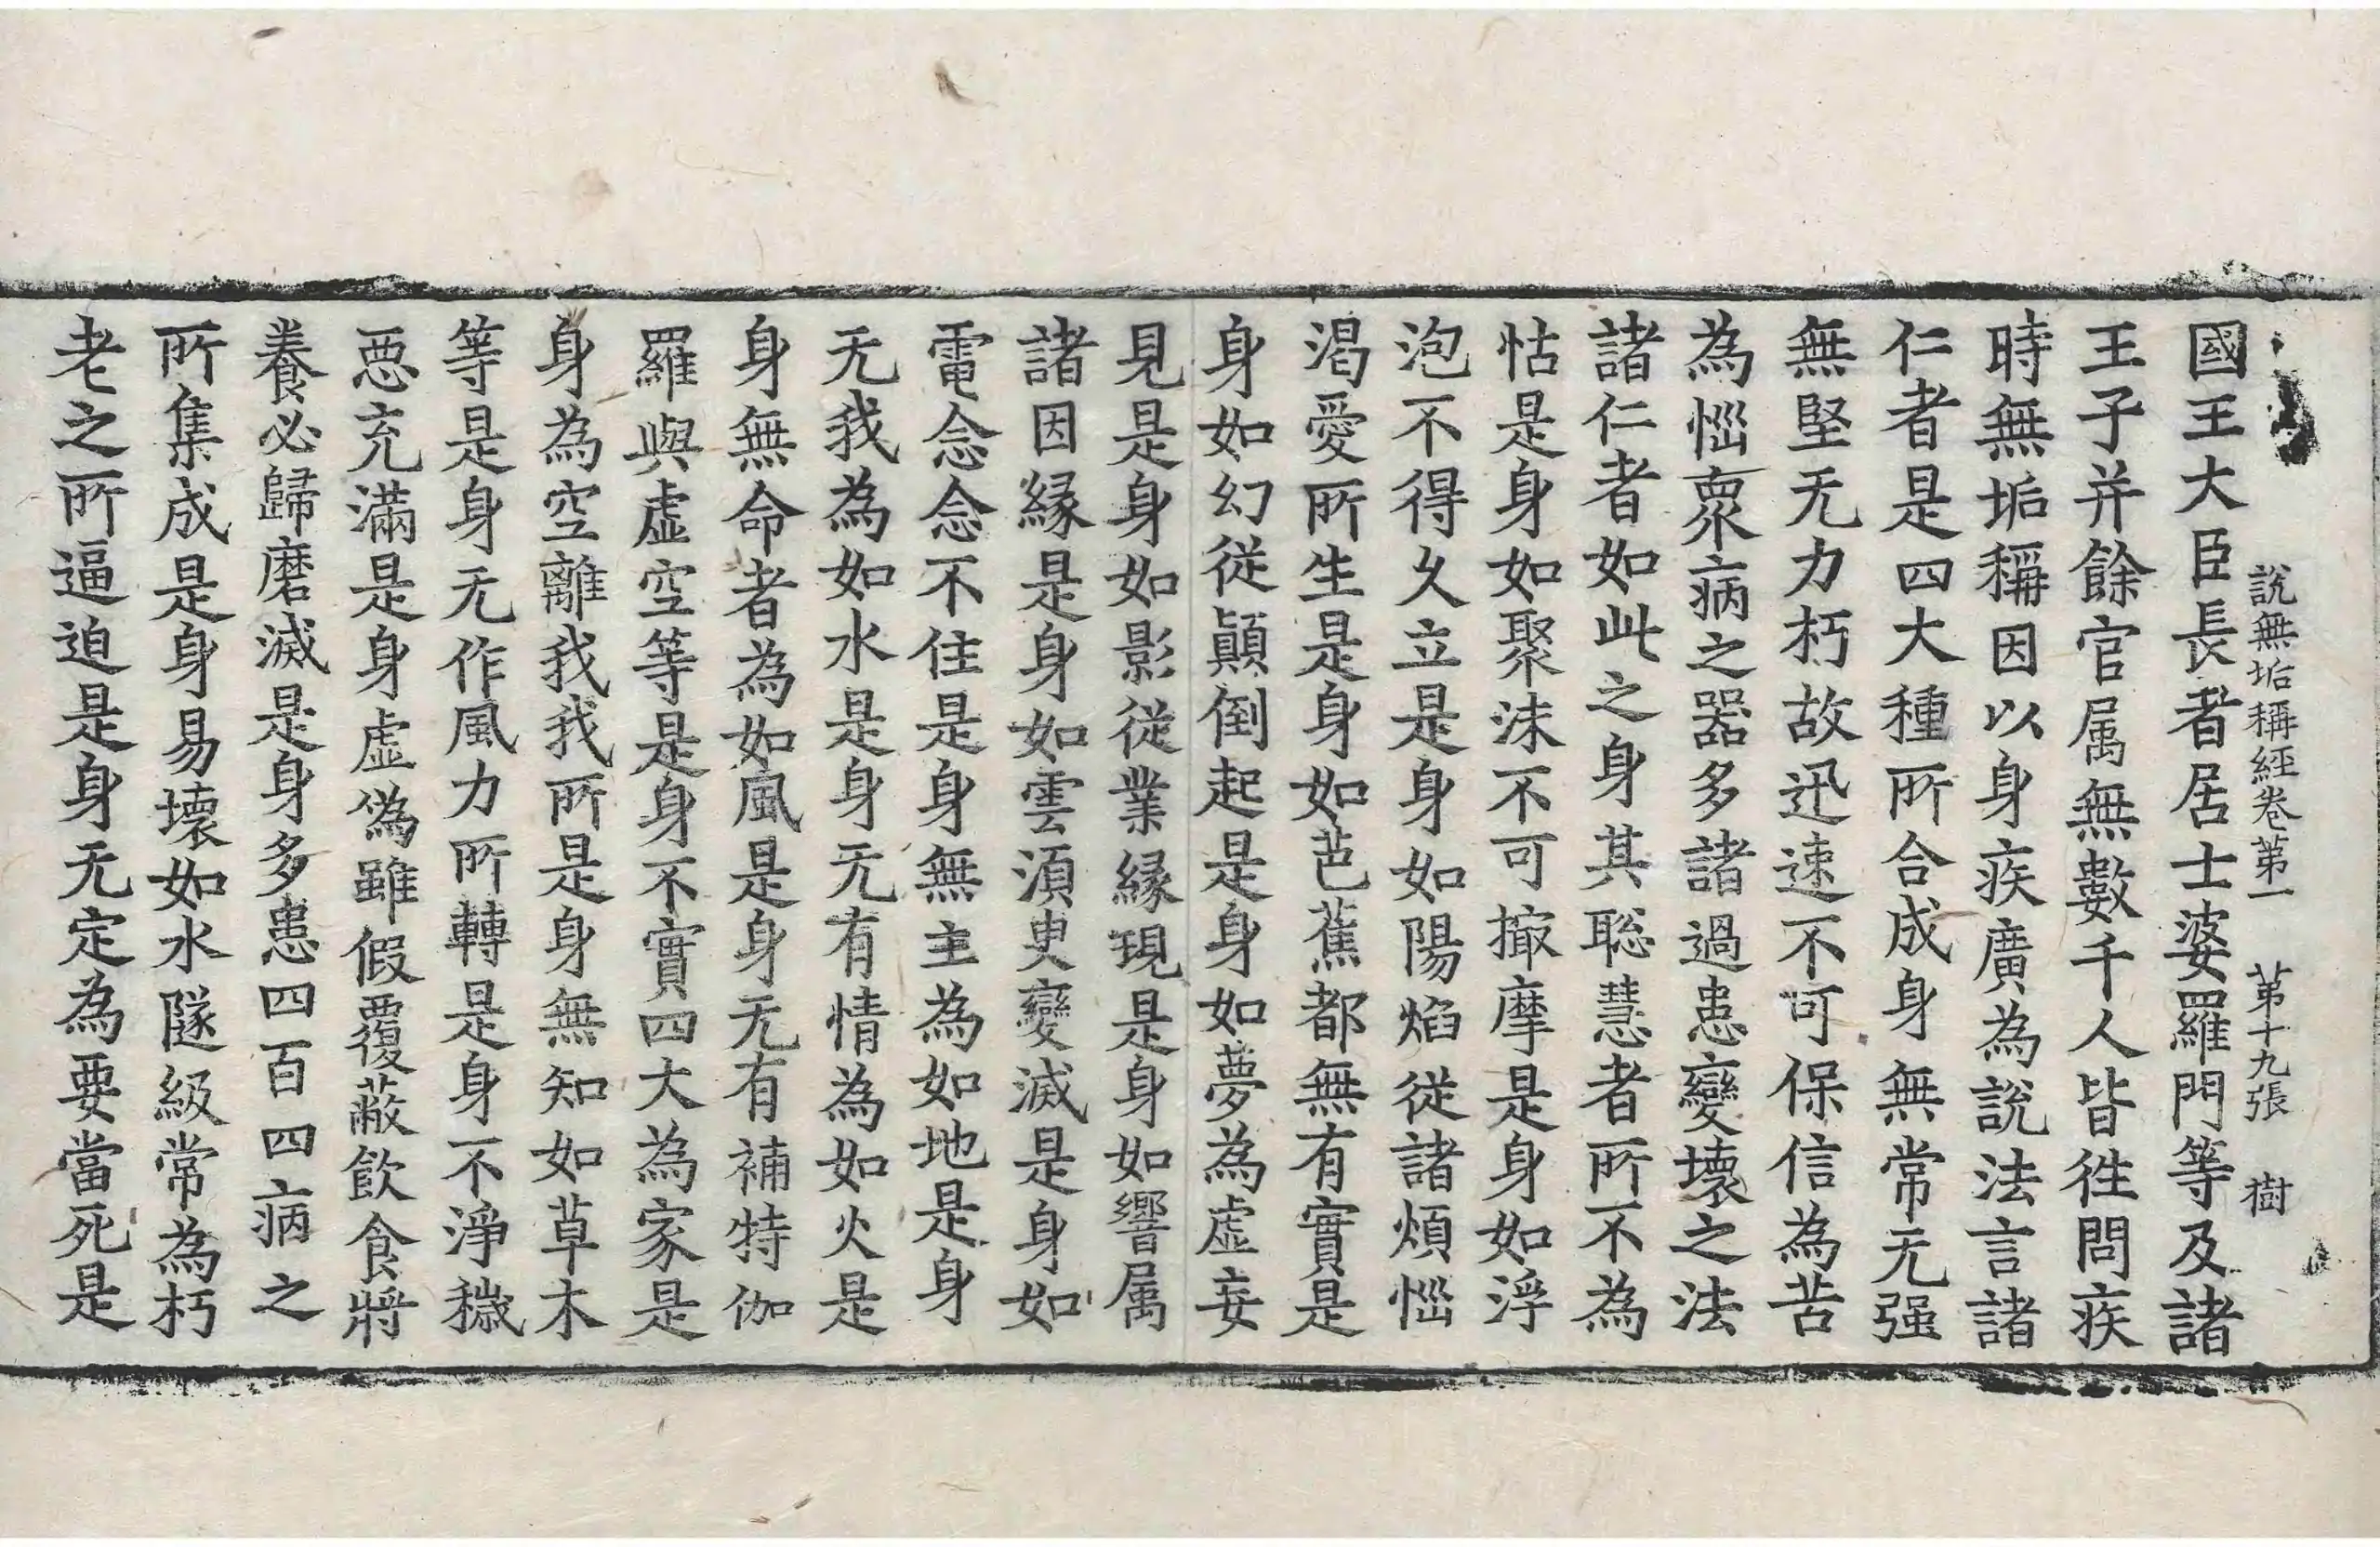 說無垢稱經卷苐一 苐十九張 樹
國王大臣長者居士婆羅門等及諸
王子并餘官属無數千人皆徃問疾
時無垢稱因以身疾廣為說法言諸
仁者是四大種所合成身無常无强
無堅无力朽故迅速不可保信為苦
為惱衆病之器多諸過患變壞之法
諸仁者如此之身其聡慧者所不為
怙是身如聚沫不可撮摩是身如浮
泡不得久立是身如陽焰従諸煩惱
渇愛所生是身如芭蕉都無有實是
身如幻従顚倒起是身如夢為虛妄
見是身如影従業縁現是身如響属
諸因縁是身如雲湏臾變滅是身如
電念念不住是身無主為如地是身
无我為如水是身无有情為如火是
身無命者為如風是身无有補特伽
羅與虛空等是身不實四大為家是
身為空離我我所是身無知如草木
等是身无作風力所轉是身不淨穢
惡充滿是身虛偽雖假覆蔽飲食將
養必歸磨滅是身多患四百四病之
所集成是身易壞如水隧級常為朽
老之所逼迫是身无定為要當死是